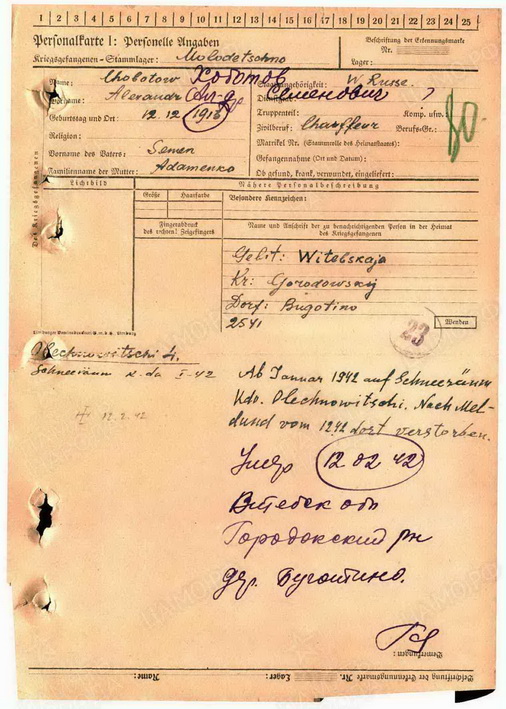 1 2 3 4 5 6 7 8 9 10 11 12 13 14 15 16 17 18 19 20 21 22 23 24 25
Personalkarte I: Personelle Angaben
Kriegsgefangenen-Stammlager: Molodetschno
Beschriftung der Erkennungsmarke
Nr.
Lager:
Des Kriegsgefangenen
Name: Chobotow Хоботов
Staatsangehörigkeit: W. Russe.
Vorname: Alexandr Ал-др Семенович
Dienstgrad: ?
Geburtstag und Ort: 12.12 1916
Truppenteil: Komp. usw.:
Zivilberuf: Chauffeur Berufs-Gr.:
80
Religion:
Matrikel Nr. (Stammrolle des Heimatstaates):
Vorname des Vaters: Semen
Gefangennahme (Ort und Datum):
Familienname der Mutter: Adamenko
Ob gesund, krank, verwundet, eingeliefert:
Lichtbild
Nähere Personalbeschreibung
Größe Haarfarbe
Besondere Kennzeichen:
Fingerabdruck
des rechten! Zeigefingers
Name und Anschrift der zu benachrichtigenden Person in der Heimat
des Kriegsgefangenen
Gebit: Witebskaja
Kr: Gorodowskij
Dorf: Bugotino
2541
23
Wenden
Olechnowitschi
Schneeräum I-42
12.2.42
Ab Januar 1942 auf Schneeräum
Kdo. Olechnowitschi. Nach Mel-
dund vom 12.42 dort verstorben.
Умер 12 02 42
Витебск обл
Городокский рн
дер. Буготино.
Bemerkungen:
Beschriftung der Erkennungsmarke Nr. Lager: Name:
ПАМО.РФ